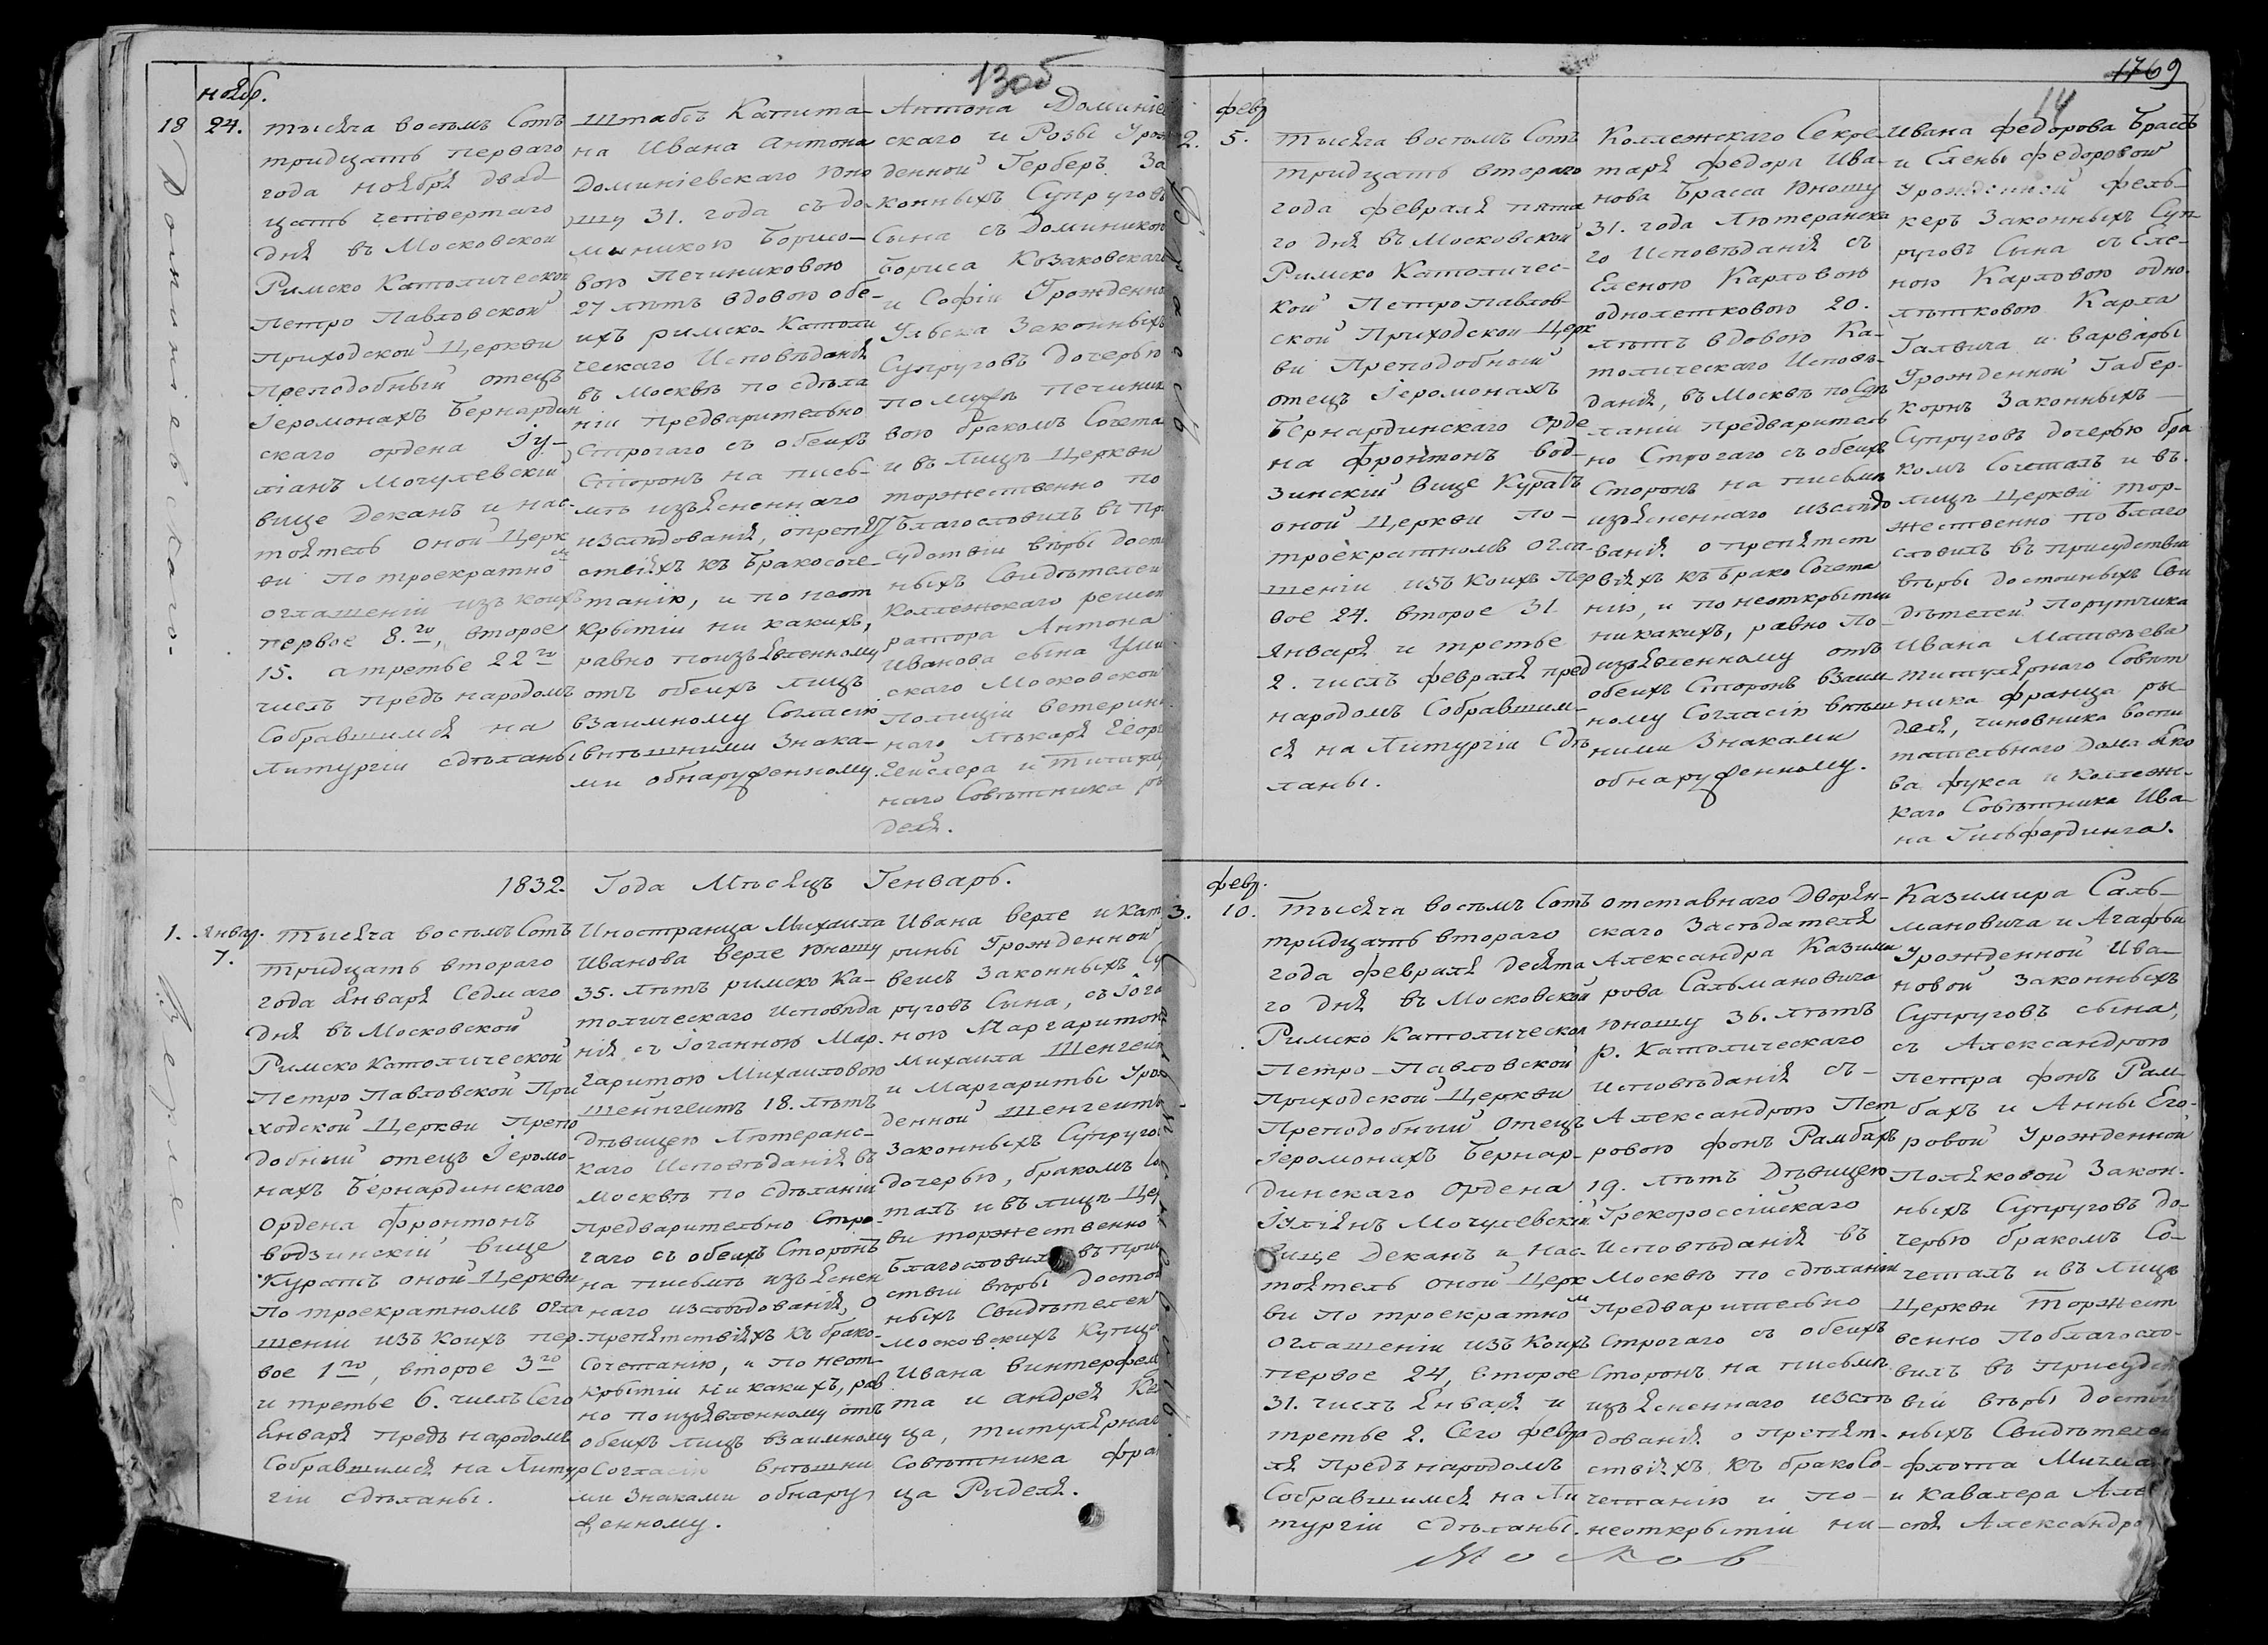 13об
нояб.
18 24.
Доминіевскаго.
тысяча восемь Сотъ
тридцать перваго
года ноября двад-
цать четвертаго
дня въ Московской
Римско Католической
Петро Павловской
Приходской Церкви
Преподобный отецъ
Іеромонахъ Бернардин
скаго ордена Іу-
ліанъ Мочулевскій
вице Деканъ и нас-
тоятель оной Церк
ви По троекратном
оглашеніи изъ коихъ
первое 8.го, второе
15. а третье 22го
числъ предъ народомъ
Собравшимся на
Литургіи сдѣланы
Штабсъ Капита-
на Ивана Антона
Доминіевскаго Юно
шу 31. года съ До
миникою Борисо-
вою Печниковою
27 лѣтъ вдовою обе-
ихъ римско-Католи
ческаго Исповѣданія
въ Москвѣ по сдѣла
ніи предварительно
Строгаго съ обеихъ
Сторонъ на пись-
мѣ изъясненнаго
изслѣдованія, о препят
ствіяхъ къ бракосоче-
танію, и по неот
крытіи ни какихъ,
равно по изъявленному
отъ обеихъ лицъ
взаимному Согласію
внѣшними Знака-
ми обнаруженному.
Антона Доминіев
скаго и Розы Урож
денной Герберъ За
конныхъ Супруговъ
Сына съ Доминикою
Бориса Козаковскаго
и Софіи Урожденной
Ульска Законныхъ
Супруговъ дочерью
по мужѣ Печнико
вою бракомъ Сочета
и въ лицѣ Церкви
торжественно по
благословилъ въ При
судствіи вѣры досто
ныхъ Свидѣтелей
Коллежскаго регист
ратора Антона
Иванова сына
скаго Московской
Полиціи ветерина
наго лѣкаря Георг
Гейслера и титуляр
наго Совѣтника Ри
деля.
1832. Года Мѣсяцъ Генварь.
1. Январ.
7.
Верле.
Тысяча восемь Сотъ
тридцать втораго
года Января Седмаго
дня въ Московской
Римско Католической
Петро Павловской При
ходской Церкви Препо
добный отецъ Іеромо-
нахъ Бернардинскаго
Ордена Фронтонъ
водзинскій вице
Куратъ оной Церкви
По троекратномъ огла
шеніи изъ коихъ пер-
вое 1го, второе 3го
и третье 6. числъ Сего
Января предъ народомъ
Собравшимся на Литур
гіи сдѣланы.
Иностранца Михаила
Иванова верле Юношу
35. лѣтъ римско Ка-
толическаго исповѣда
нія съ Іоганною Мар-
гаритою Михаиловою
Шейнгеитъ 18. лѣтъ
дѣвицею Лютеранс-
каго Исповѣданія въ
Москвѣ по сдѣланіи
предварительно Стро-
гаго съ обеихъ Сторонъ
на письмѣ изъяснен
наго изслѣдованія, о
препятствіяхъ къ брако-
Сочетанію, и по неот-
крытіи ни какихъ, рав
но по изъявленному отъ
обеихъ лицъ взаимному
Согласію внѣшни
ми знаками обнару
женному.
Ивана верле и Кат
рины Урожденной
веисъ Законныхъ Су
руговъ Сына, съ Іога
ною Маргаритою
Михаила Шенгеит
и Маргариты Урож
денной Шенгеитъ
Законныхъ Супругов
дочерью, бракомъ Со
талъ и въ лицѣ Цер
ви торжественно
благословилъ въ при
ствіи вѣры досто
ныхъ Свидѣтелей
Московскихъ Купцо
Ивана Винтерфел
та и Андрея Ке
ца, титулярнаг
Совѣтника Фран
ца Риделя.
1769
14
февр
2. 5.
Брассъ
Тысяча восемь Сотъ
тридцать втораго
года февраля пята
го дня въ Московской
Римско Католичес-
кой Петропавлов
ской Приходской Церк
ви Преподобный
отецъ Іеромонахъ
Бернардинскаго Орде
на Фронтонъ Вод-
зинскій Вице Куратъ
оной Церкви по-
троекратномъ огла-
шеніи изъ коихъ Пер
вое 24. второе 31
Января и третье
2. числъ февраля пред
народомъ Собравшим-
ся на Литургіи Сдѣ
ланы.
Коллежскаго Секре-
таря Федора Ива-
нова Брасса Юношу
31. года Лютеранска
го Исповѣданія съ
Еленою Карловою
однолетковою 20.
лѣтъ вдовою Ка-
толическаго Исповѣ-
данія, въ Москвѣ по Сдѣ
ланіи предваритель
но Строгаго съ обеихъ
Сторонъ на письмѣ
изъясненнаго изслѣдо
ванія о препятст
віяхъ къ брако Сочета
нію, и по неоткрытіи
никакихъ, равно По-
изъявленному отъ
обеихъ Сторонъ взаим-
ному Согласію внѣш
ними Знаками
обнаруженному.
Ивана Федорова Брассъ
и Елены Федоровой
Урожденной Фель-
керъ Законныхъ Суп-
руговъ Сына съ Еле-
ною Карловою одно-
лѣтковою Карла
Галвича и варвары
Урожденной Габер-
корнъ Законныхъ
Супруговъ дочерью бра
комъ Сочеталъ и въ
лицѣ Церкви тор-
жественно по благо
словилъ въ присудствіи
вѣры достойныхъ Сви
дѣтелей Порутчика
Ивана Матвѣева
титулярнаго Совѣт
ника Франца Ри-
деля, чиновника Воспи
тательнаго Дома Яко
ва Фукса и Коллеж-
каго Совѣтника Ива-
на Гильфердинга.
февр.
3. 10.
Сальмановичъ.
Тысяча восемь Сотъ
тридцать втораго
года февраля десята
го дня въ Московской
Римско Католической
Петро-Павловской
Приходской Церкви
Преподобный Отецъ
Іеромонахъ Бернар-
динскаго Ордена
Іуліянъ Мочулевскій
Вице Деканъ и Нас-
тоятель оной Церк
ви По троекратном
Оглашеніи изъ Коихъ
первое 24, второе
31. числъ Января и
третье 2. Сего февра
ля Предъ народомъ
Собравшимся на Ли
тургіи сдѣланы.
отставнаго Дворян-
скаго Засѣдателя
Александра Казими
рова Сальмановича
Юношу 36. лѣтъ
р. Католическаго
исповѣданія съ-
Александрою Пет
ровою фонъ Рамбахъ
19. лѣтъ Дѣвицею
Грекороссійскаго
Исповѣданія въ
Москвѣ по сдѣланіи
Предварительно
Строгаго съ обеихъ
Сторонъ на письмѣ
изъясненнаго изслѣ
дованія о Препят-
ствіяхъ къ брако Со-
четанію и по-
неоткрытіи ни-
Казимира Саль-
мановича и Агафьи
Урожденной Ива-
новой Законныхъ
Супруговъ сына,
съ Александрою
Петра фонъ Рам-
бахъ и Анны Его-
ровой Урожденной
Поляковой Закон-
ныхъ Супруговъ до-
черью бракомъ Со-
четалъ и въ Лицѣ
Церкви Торжест
венно Поблагосло-
вилъ въ Присудст
віи вѣры достой
ныхъ Свидѣтелей
флота Мичма
и Кавалера Але
сѣя Александро
Москов